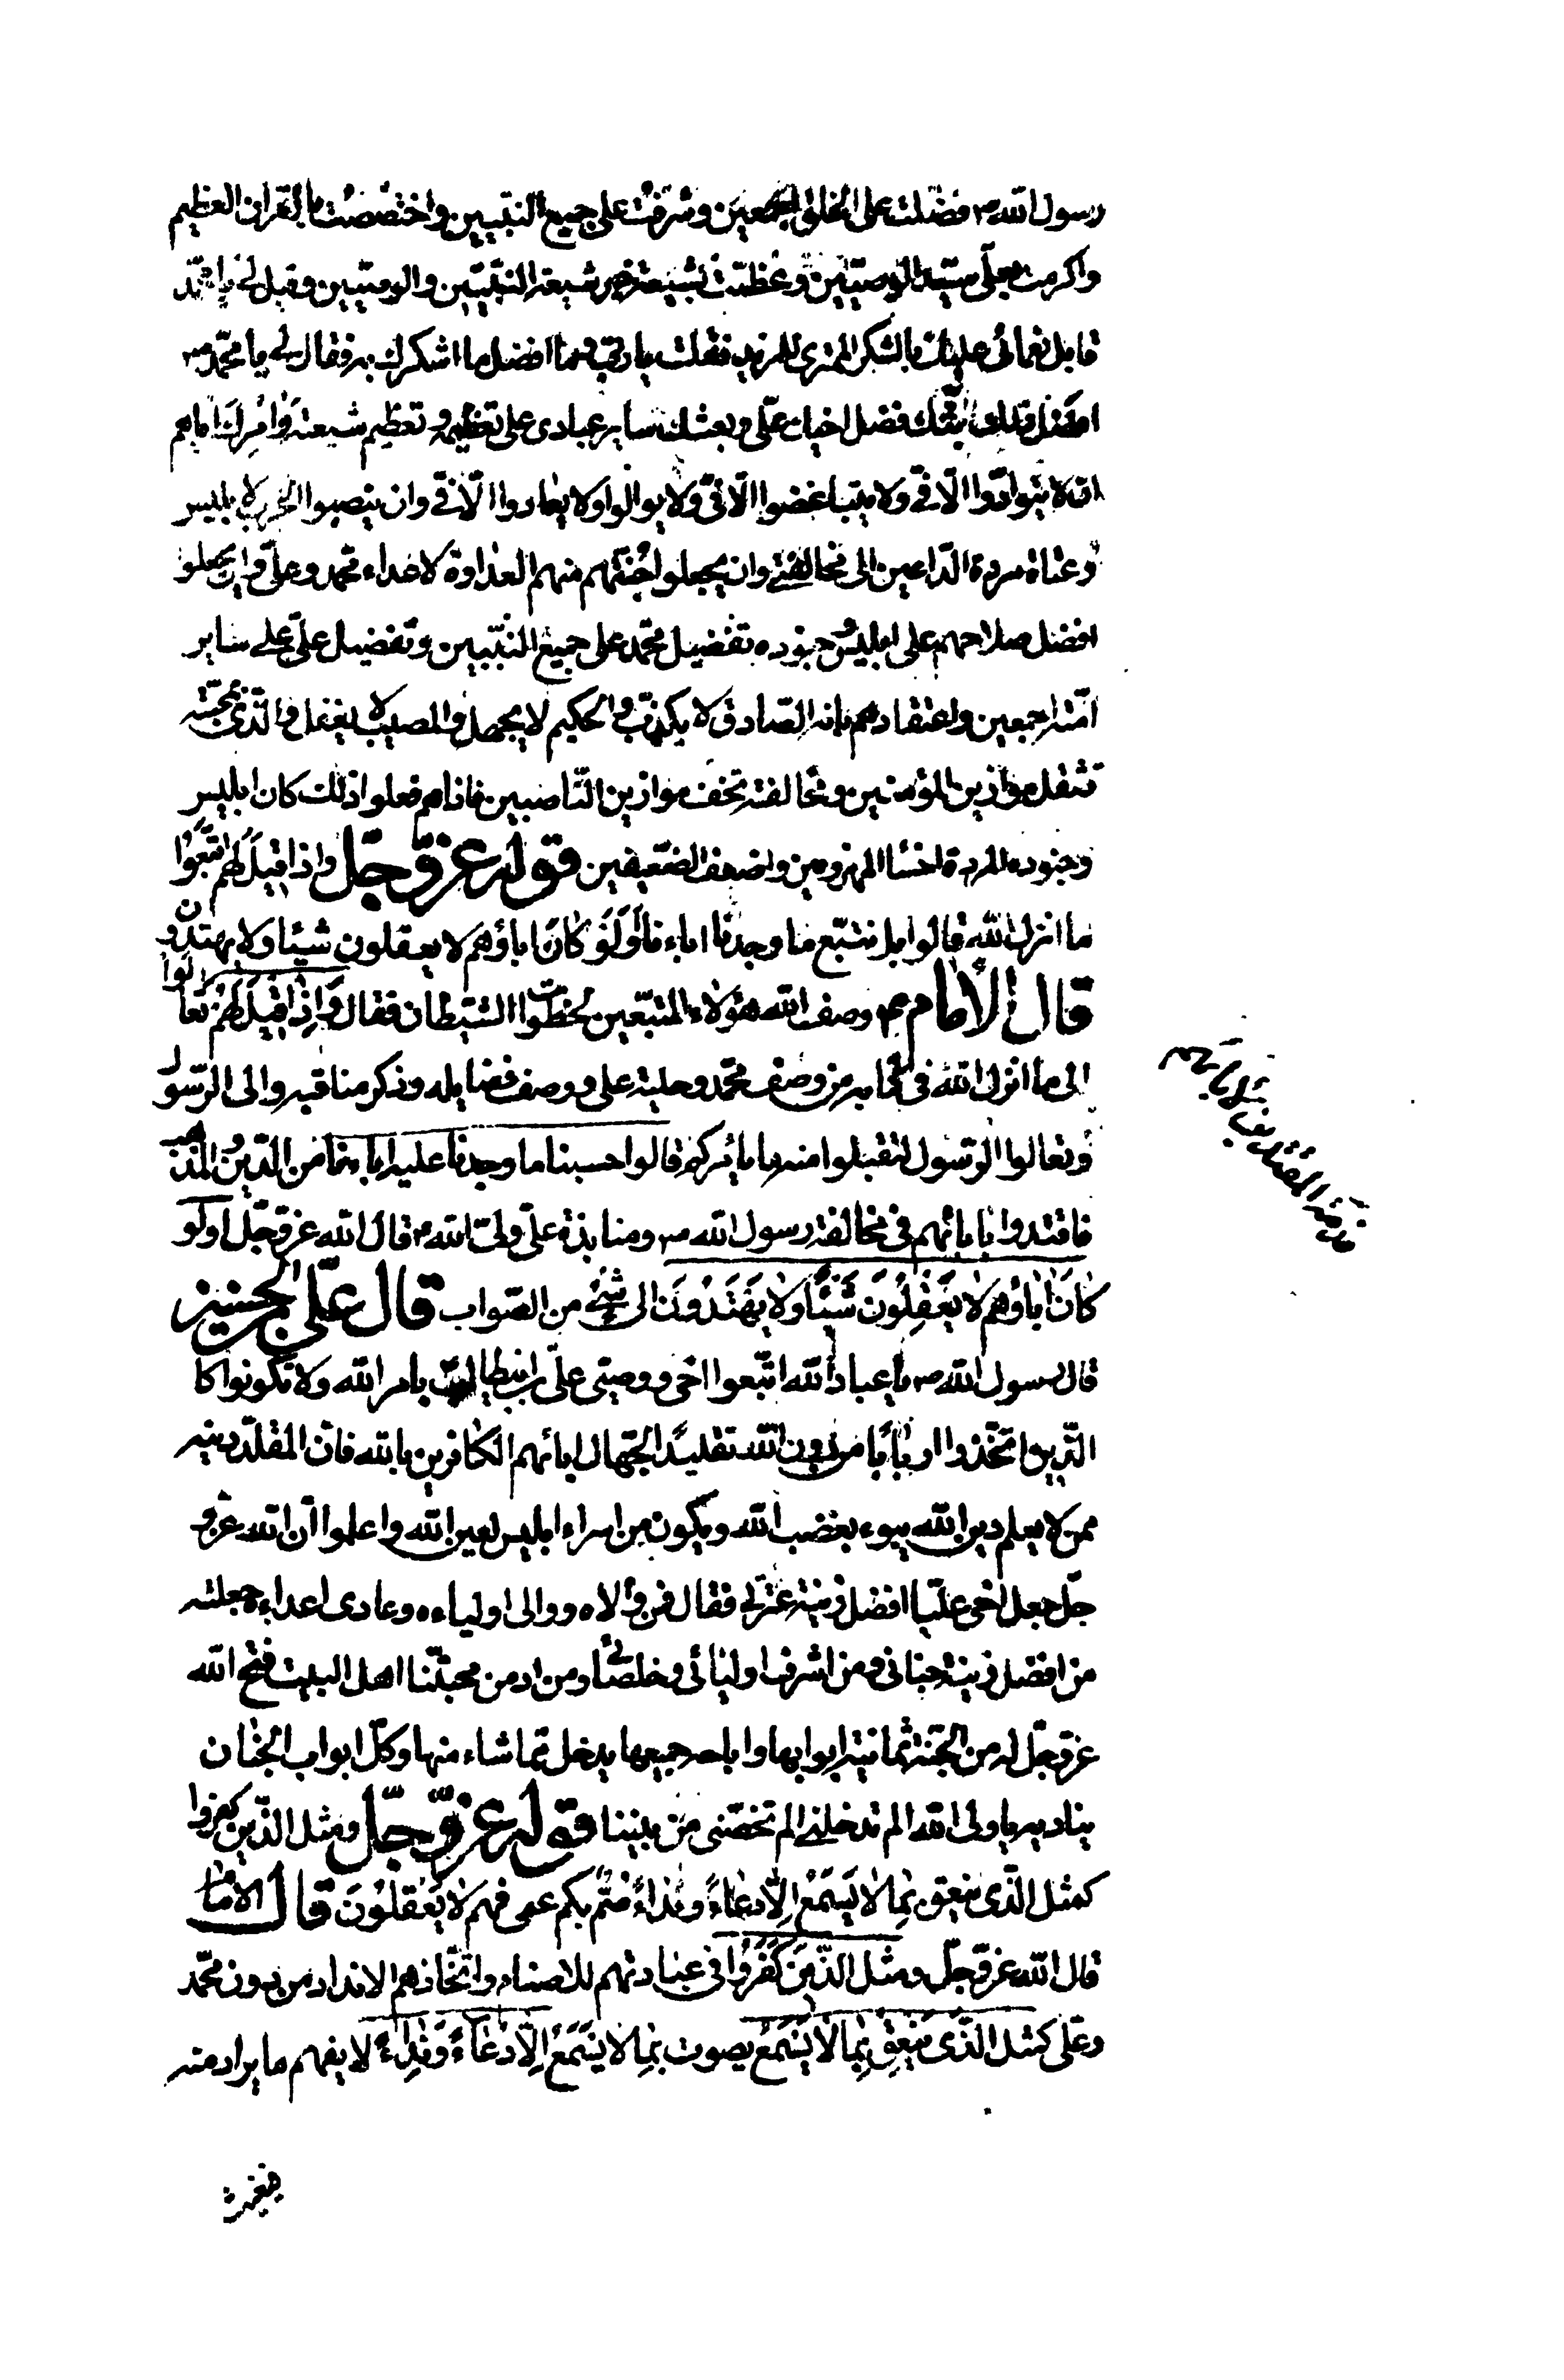 رسول الله ص فضّلت على الخلق اجمعين وشرّفت على جميع النبيّين واختصصت بالقران العظيم
واكرمت بعلىّ سيّد الوصيّين وعظّمت بشيعته خير شيعة النبيّين والوصيّين وقيل لى يا محمّد
قابل نعمائى عليك بالشكر الممترى للمزيد فقلت يا ربّى وما افضل ما اشكرك به فقال لى يا محمّد ص
افضل ذلك بثّك فضل اخيك علىّ وبعثك ساير عبادى على تعظيمه وتعظيم شيعته وامرك ايّاهم
ان لا يتوادّوا الّا فىّ ولا يتباغضوا الّا فىّ ولا يوالوا ولا يعادوا الّا فىّ وان ينصبوا الحرب لابليس
وعتاة مردة الدّاعين الى مخالفتى وان يجعلوا جنّتهم منهم العداوة لاعداء محمد وعلىّ وان يجعلوا
افضل سلاحهم على ابليس وجنوده تفضيل محمّد على جميع النبيّين وتفضيل علىّ على ساير
امّته اجمعين واعتقادهم بانه الصّادق لا يكذب والحكيم لا يجهل والمصيب لا يغفل والّذى بمحبّته
تثقل موازين المؤمنين وبمخالفته تخف موازين النّاصبين فاذا هم فعلوا ذلك كان ابليس
وجنوده المردة اخسا المهزومين واضعف الضّعيفين قوله عزّ وجلّ واذا قيل لهم اتّبعوا
ما انزل الله قالوا بل نتّبع ما وجدنا اباءنا أولو كان اباؤهم لا يعقلون شيئا ولا يهتدون
قال الامام ع وصف الله هؤلاء المتّبعين لخطوات الشيطان فقال واذا قيل لهم تعالوا
الى ما انزل الله فى كتابه من وصف محمّد وحلية على ووصف فضايله وذكر مناقبه والى الرّسول
وتعالوا الى الرّسول لتقبلوا منه ما يأمركم قالوا حسبنا ما وجدنا عليه اباءنا من الدّين والمذهب
فاقتدوا بابائهم فى مخالفة رسول الله ص ومنابذة علىّ ولىّ الله ع قال الله عزّ وجلّ اولو
كان اباؤهم لا يعقلون شيئا ولا يهتدون الى شئ من الصّواب قال علىّ بن الحسين
قال رسول الله ص يا عباد الله اتّبعوا اخى ووصيّى علىّ بن ابيطالب بامر الله ولا تكونوا كا
الّذين اتّخذوا اربابا من دون الله تقليدا لجهّال ابائهم الكافرين بالله فانّ المقلّد دينه
ممن لا يعلم دين الله يبوء بغضب الله ويكون من اسراء ابليس لعين الله واعلموا انّ الله عزّ و
جلّ جعل اخى عليّا افضل زينة عترتى فقال من والاه ووالى اولياءه وعادى اعداءه جعلته
من افضل زينة جنانى ومن اشرف اوليائى وخلصائى ومن ادمن محبتنا اهل البيت فتح الله
عزّ وجلّ له من الجنّة ثمانية ابوابها واباحه جميعها يدخل ممّا شاء منها وكلّ ابواب الجنان
يناديه يا ولى الله الم تدخلنى الم تخصّنى من بيننا قوله عزّ وجلّ ومثل الّذين كفروا
كمثل الّذى ينعق بما لا يسمع الّا دعاء ونداء صمّ بكم عمى فهم لا يعقلون قال الامام
قال الله عزّ وجلّ ومثل الذّين كفروا فى عبادتهم للاصنام واتّخاذهم الانداد من دون محمّد
وعلى كمثل الذّى ينعق بما لا يسمع يصوت بما لا يسمع الّا دعاء ونداء لا يفهم ما يراد منه